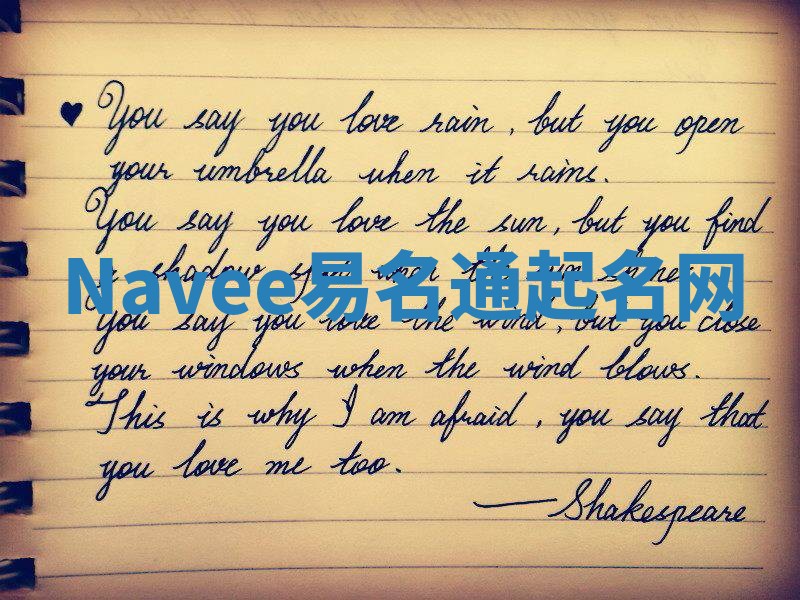 ♥ You say you love rain, but you open
your umbrella when it rains.
You say you love the sun, but you find
a shadow spot when the sun shines.
Navee易名通起名网
You say you love the wind, but you close
your windows when the wind blows.
This is why I am afraid, you say that
you love me too.
—Shakespeare